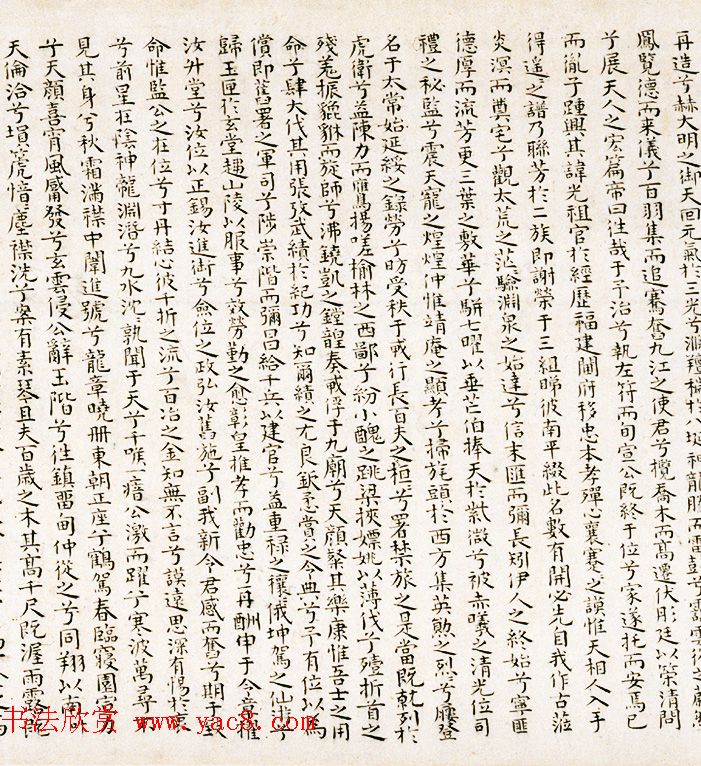 再造兮赫大明之御天回元氣於三光兮滌羶穢於八埏神龍騰而雷彭兮
鳳覽德而來儀兮百羽集而追騫奮九江之使君兮攬喬木而高遷伏彤廷以策清問
兮展天人之宏篇帝曰往哉于予治兮執左符而旬宣公既終于位兮家遂托而安焉已
而胤子踵興其諱光祖官於經歷福建閫府移忠本孝殫心襄蹇之謨惟天相人入手
得遙之譜乃聯芳於二族即謝榮于三組睇彼南平綴此名數有開必先自我作古蒞
炎溟而奠宅兮觀太荒之茫驗淵泉之始達兮信末匯而彌長矧伊人之終始兮寧匪
德厚而流芳更三葉之敷華兮駢七曜以垂芒伯捧天於紫微兮被赤曦之清光位司
禮之秘監兮震天寵之煌煌仲惟靖庵之顯考兮掃旄頭於西方集英勲之烈兮屢登
名于太常始延綏之錄勞兮昉受秩于戎行長百夫之桓兮署禁旅之是當既列於
虎衛兮益陳力而鷹揚嗟榆林之西鄙兮紛小醜之跳梁挾嫖姚以薄伐兮殪折首之
殘羗振貔貅而旋師兮沸鐃凱之鏜奏戎俘于九廟兮天顔繄其樂康惟吾士之用
命兮肆大伐其用張攷武績於紀功兮知爾績之尤良欽予賞之令典兮予有位以為
償即舊署之軍司兮陟崇階而彌昌給千兵以建官兮益重祿之穰俄坤駕之仙游兮
歸玉匣於玄堂趨山陵以服事兮效勞勤之愈彰皇推孝而勸忠兮再酬申于令章雖
汝升堂兮汝位以正錫汝進銜兮僉位之政弘汝舊施兮副我新令君感而奮兮期于致
命惟監公之在位兮寸丹結心彼千折之流兮百冶之金知無不言兮謨遠思深有惕於衷
兮前星在陰神龍淵潛兮九水沈孰聞于天兮千唯一瘖公激而躍兮寒波萬尋初
見其身兮秋霜滿襟中闈進號兮龍章曉冊東朝正座兮鶴駕春臨寢園
兮天顔喜宵風霾發兮玄雲侵公辭玉階兮往鎮留甸仲從之兮同翔以南
天倫洽兮塤篪愔塵襟洗兮案有素琴且夫百歲之木其高千尺既渥雨露既
书法欣赏 www.yac8.com